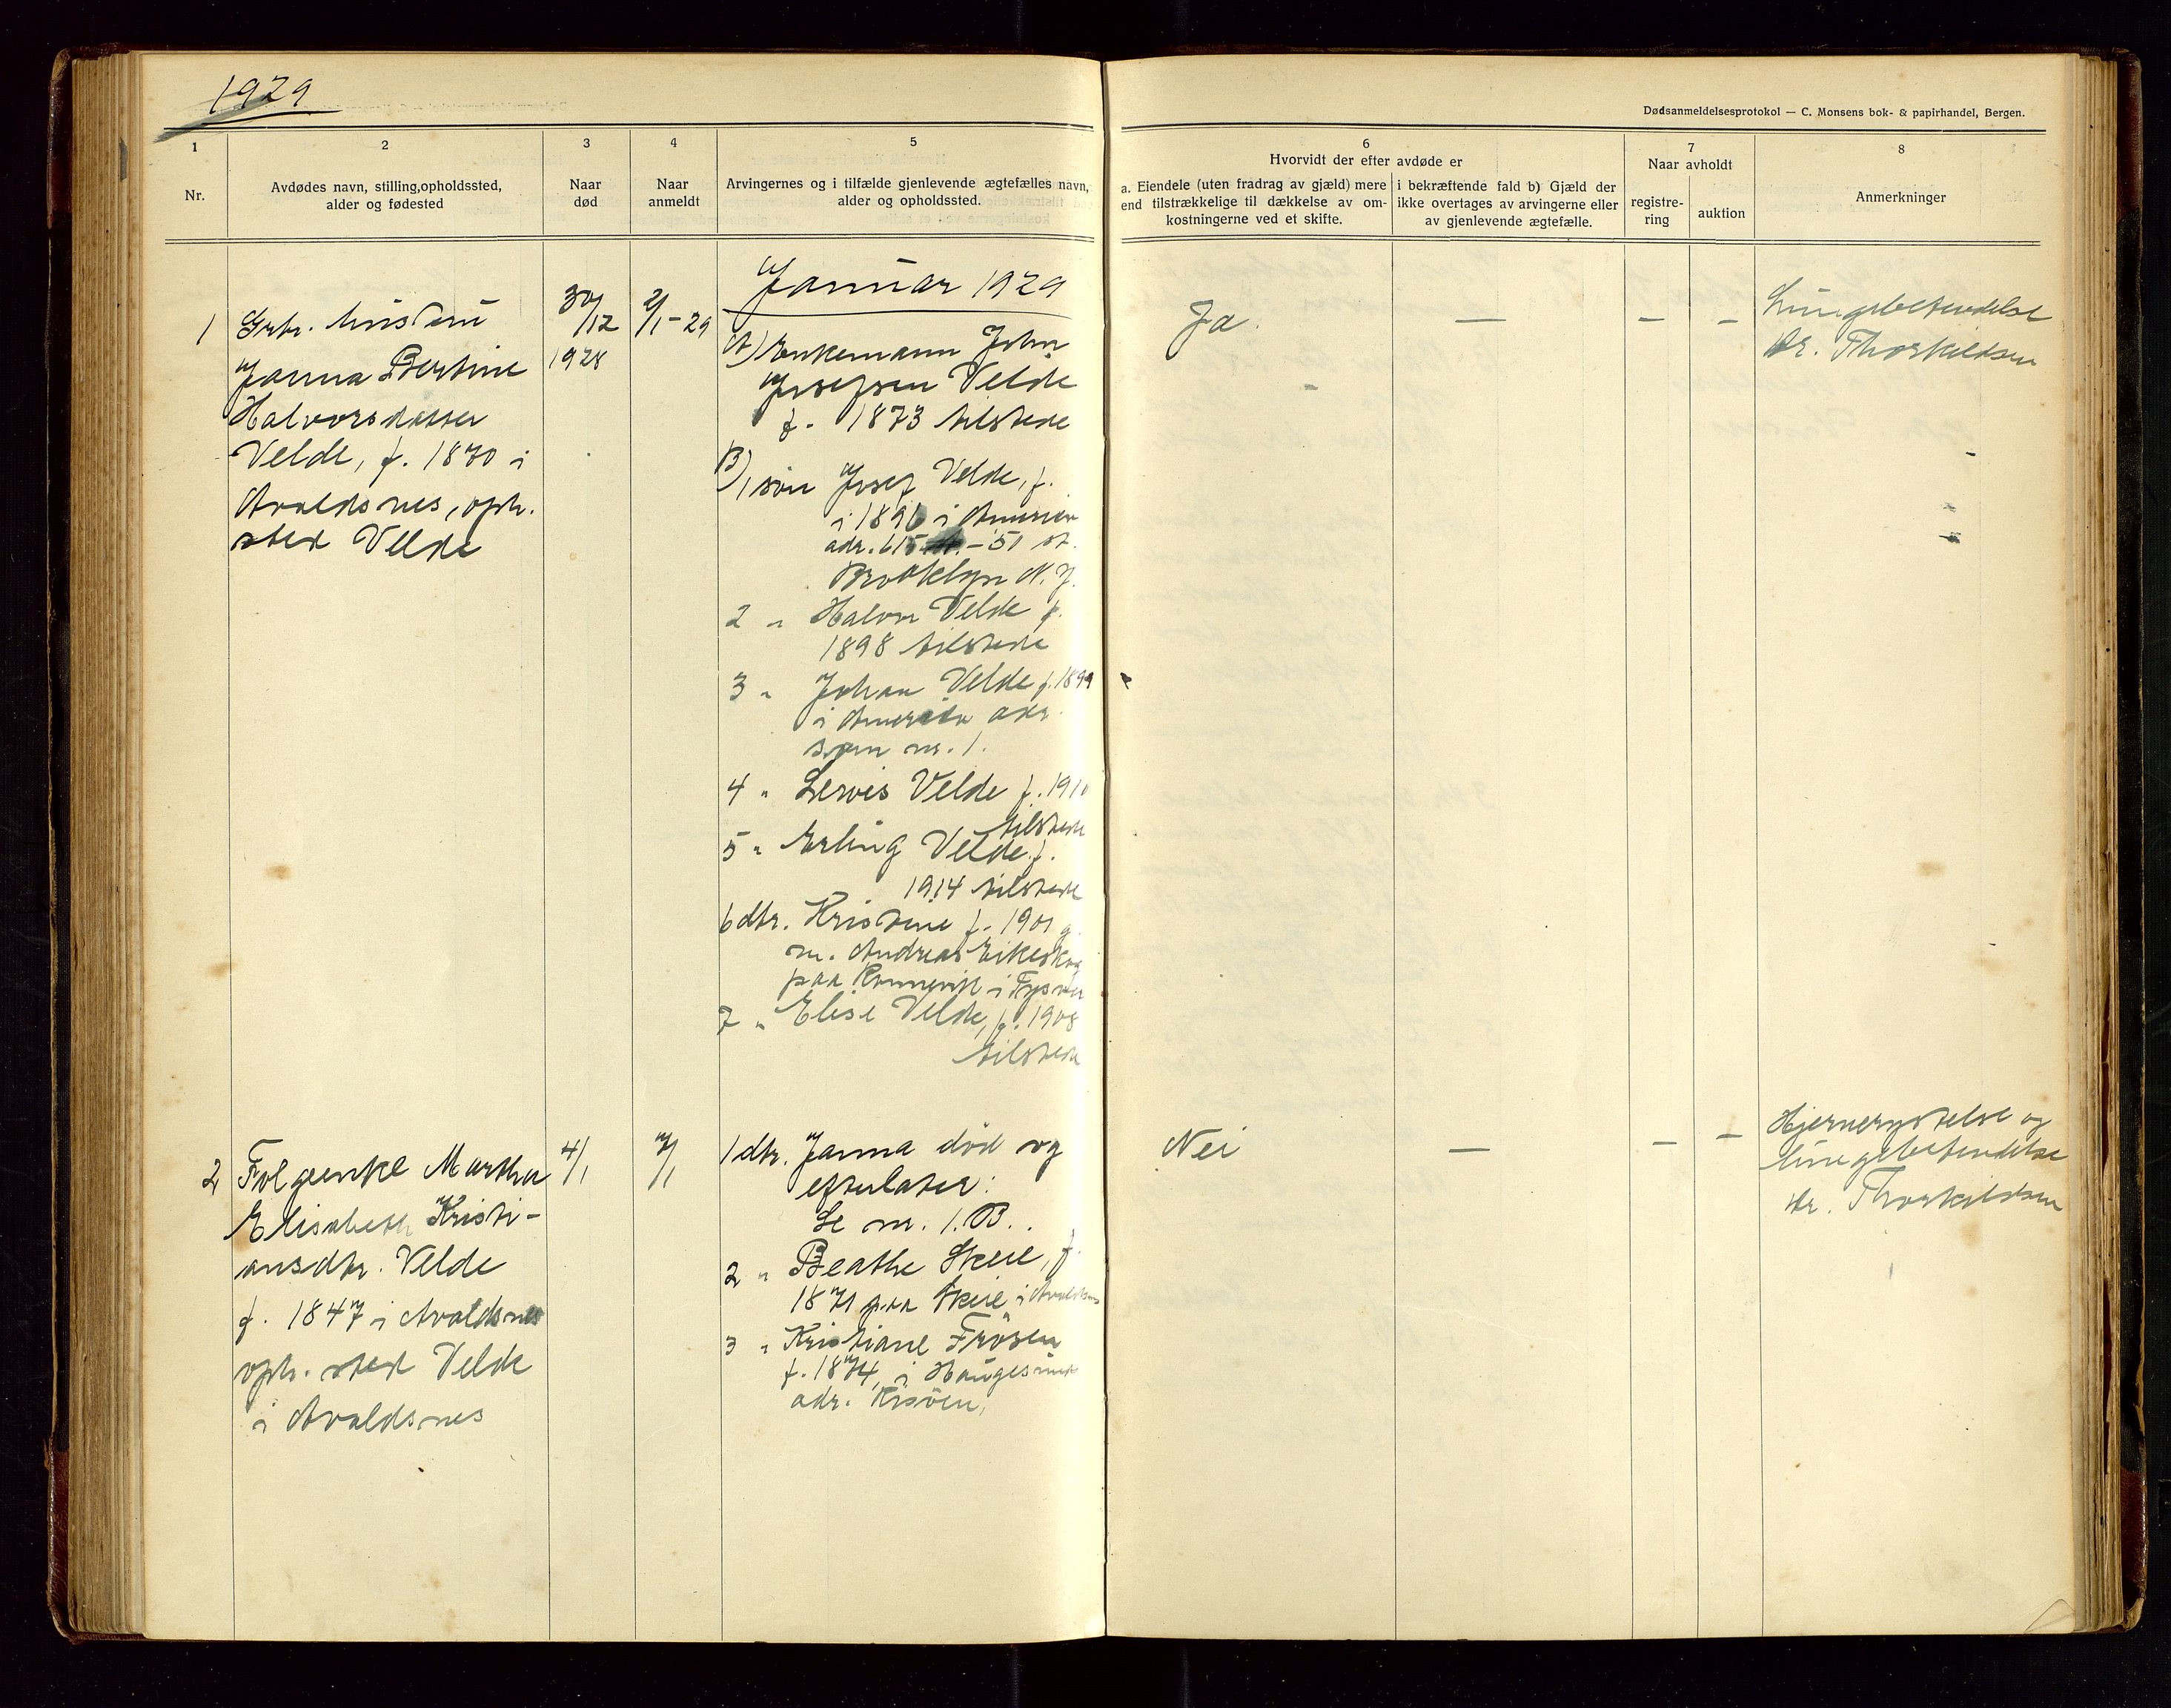 1929
Dødsanmeldelsesprotokol — C. Monsens bok- & papirhandel, Bergen.
1
Nr.
2
Avdødes navn, stilling, opholdssted,
alder og fødested
3
Naar
død
4
Naar
anmeldt
5
Arvingernes og i tilfælde gjenlevende ægtefælles navn,
alder og opholdssted.
6
Hvorvidt der efter avdøde er
a. Eiendele (uten fradrag av gjæld) mere
end tilstrækkelige til dækkelse av om-
kostningerne ved et skifte.
i bekræftende fald b) Gjæld der
ikke overtages av arvingerne eller
av gjenlevende ægtefælle.
7
Naar avholdt
registre-
ring
auktion
8
Anmerkninger
Januar 1929
1
Grbr. hustru
Janna Bertine
Halvorsdatter
Velde, f. 1870 i
Avaldsnes, oph.
sted Velde
30/12
1928
2/1-29
A) Enkemann John
Josefsen Velde
f. 1873 tilstede
B)
1 søn Josef Velde, f.
i 1896 i Amerika
adr. 615 - 51 st.
Brooklyn N.J.
2 " Halvor Velde f.
1898 tilstede
3 " Johan Velde f. 1899
i Amerika adr.
som nr. 1.
4 " Lervis Velde f. 1910
tilstede
5 " Erling Velde f.
1914 tilstede
6 dtr. Kristine f. 1901 g.
m. Andreas Eikeskog
paa i Tysvær
7 " Elise Velde, f. 1908
tilstede
Ja.
—
—
—
Lungebetendelse
Dr. Thorkildsen
2
Folgeenke Martha
Elisabeth Kristi-
ansdtr. Velde
f. 1847 i Avaldsnes
oph. sted Velde
i Avaldsnes
4/1
7/1
1 dtr. Janna död og
efterlater:
Se nr. 1. B.
2 " Beathe Skeie, f.
1871 paa Skeie i Avaldsnes
3 " Kristiane Frösen
f. 1874, i Haugesund
adr. Risöen,
Nei
—
—
—
Hjernerystelse og
lungebetendelse
Dr. Thorkildsen